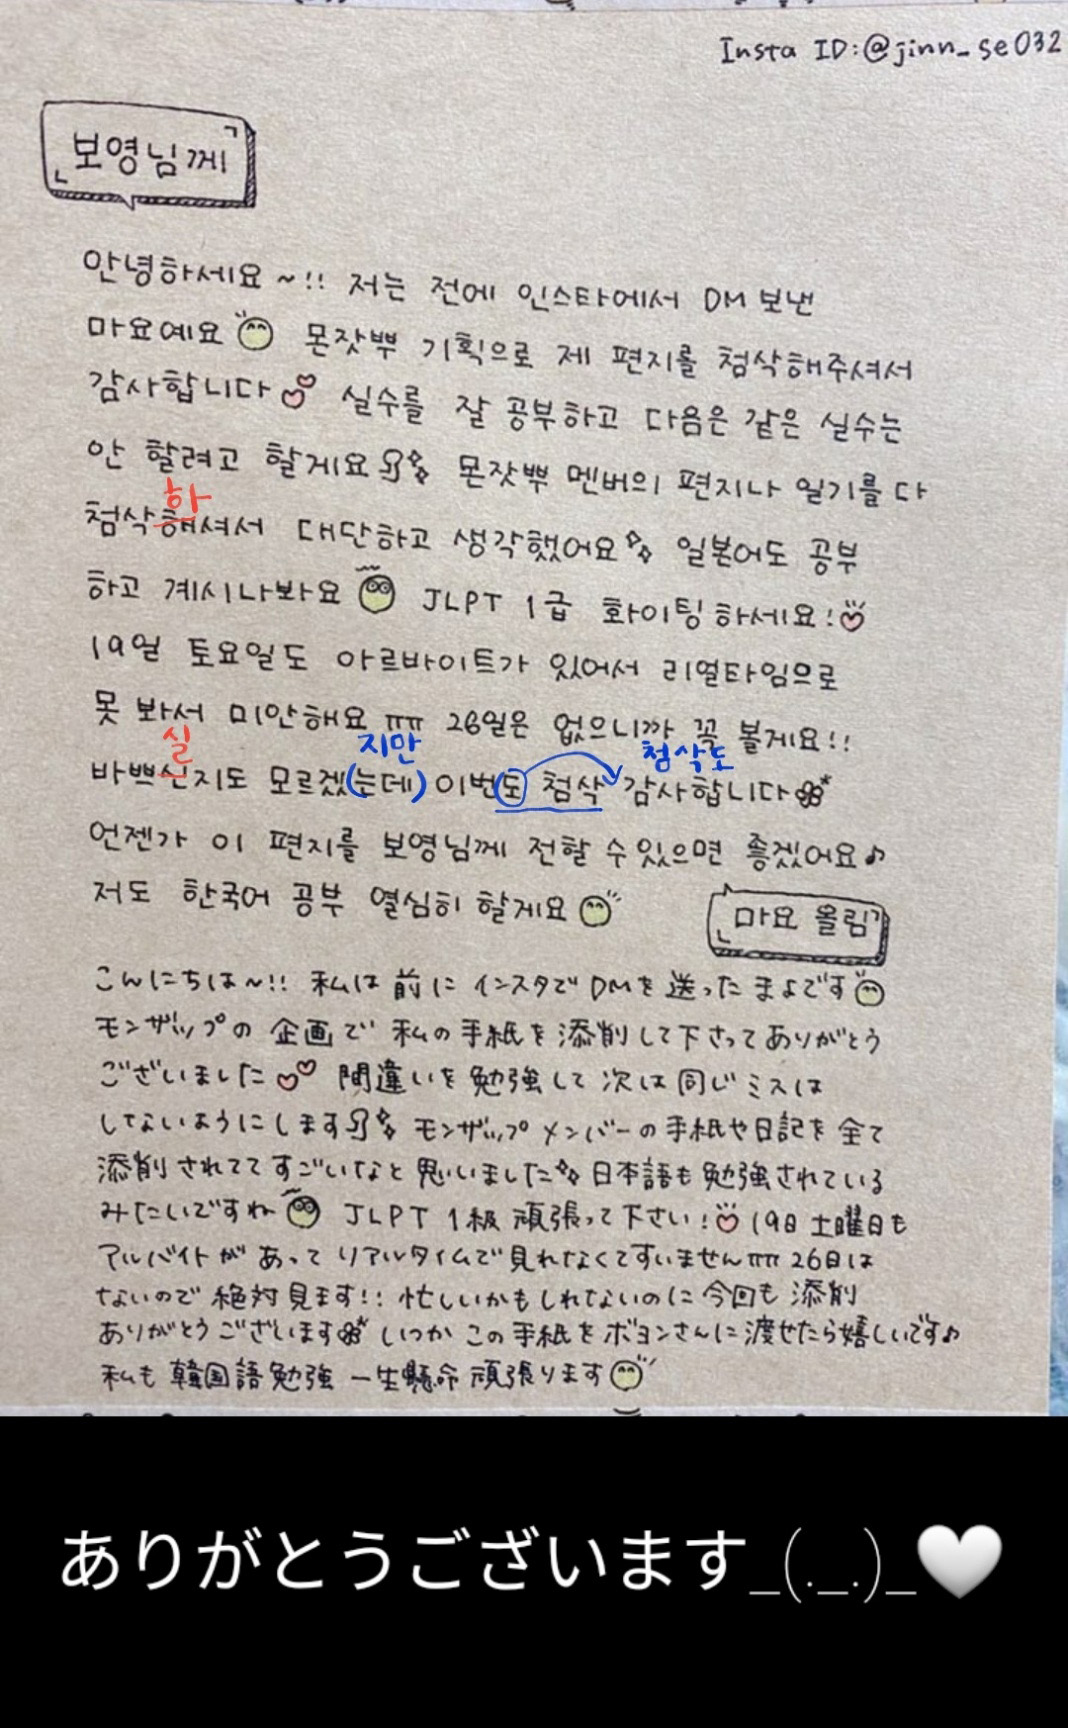 Insta ID:@jinn_se032
보영님께
안녕하세요~!! 저는 전에 인스타에서 DM 보낸
마요예요 몬잣뿌 기획으로 제 편지를 첨삭해주셔서
감사합니다 실수를 잘 공부하고 다음은 같은 실수는
안 할려고 할게요 몬잣뿌 멘버의 편지나 일기를 다
하
첨삭해셔서 대단하고 생각했어요 일본어도 공부
하고 계시나봐요 JLPT 1급 화이팅하세요!
19일 토요일도 아르바이트가 있어서 리얼타임으로
못 봐서 미안해요 ㅠㅠ 26일은 없으니까 꼭 볼게요!!
실 지만 첨삭도
바쁘신지도 모르겠(는데) 이번도 첨삭 감사합니다
언젠가 이 편지를 보영님께 전할 수 있으면 좋겠어요♪
저도 한국어 공부 열심히 할게요
마요 올림
こんにちは~!! 私は前にインスタでDMを送ったまよです
モンザップの企画で私の手紙を添削して下さってありがとう
ございました 間違いを勉強して次は同じミスは
しないようにします モンザップメンバーの手紙や日記を全て
添削されててすごいなと思いました 日本語も勉強されている
みたいですね JLPT 1級頑張って下さい! 19日土曜日も
アルバイトがあってリアルタイムで見れなくてすいませんㅠㅠ 26日は
ないので絶対見ます!! 忙しいかもしれないのに今回も添削
ありがとうございます いつかこの手紙をボヨンさんに渡せたら嬉しいです♪
私も韓国語勉強一生懸命頑張ります
ありがとうございます_(._.)_🤍